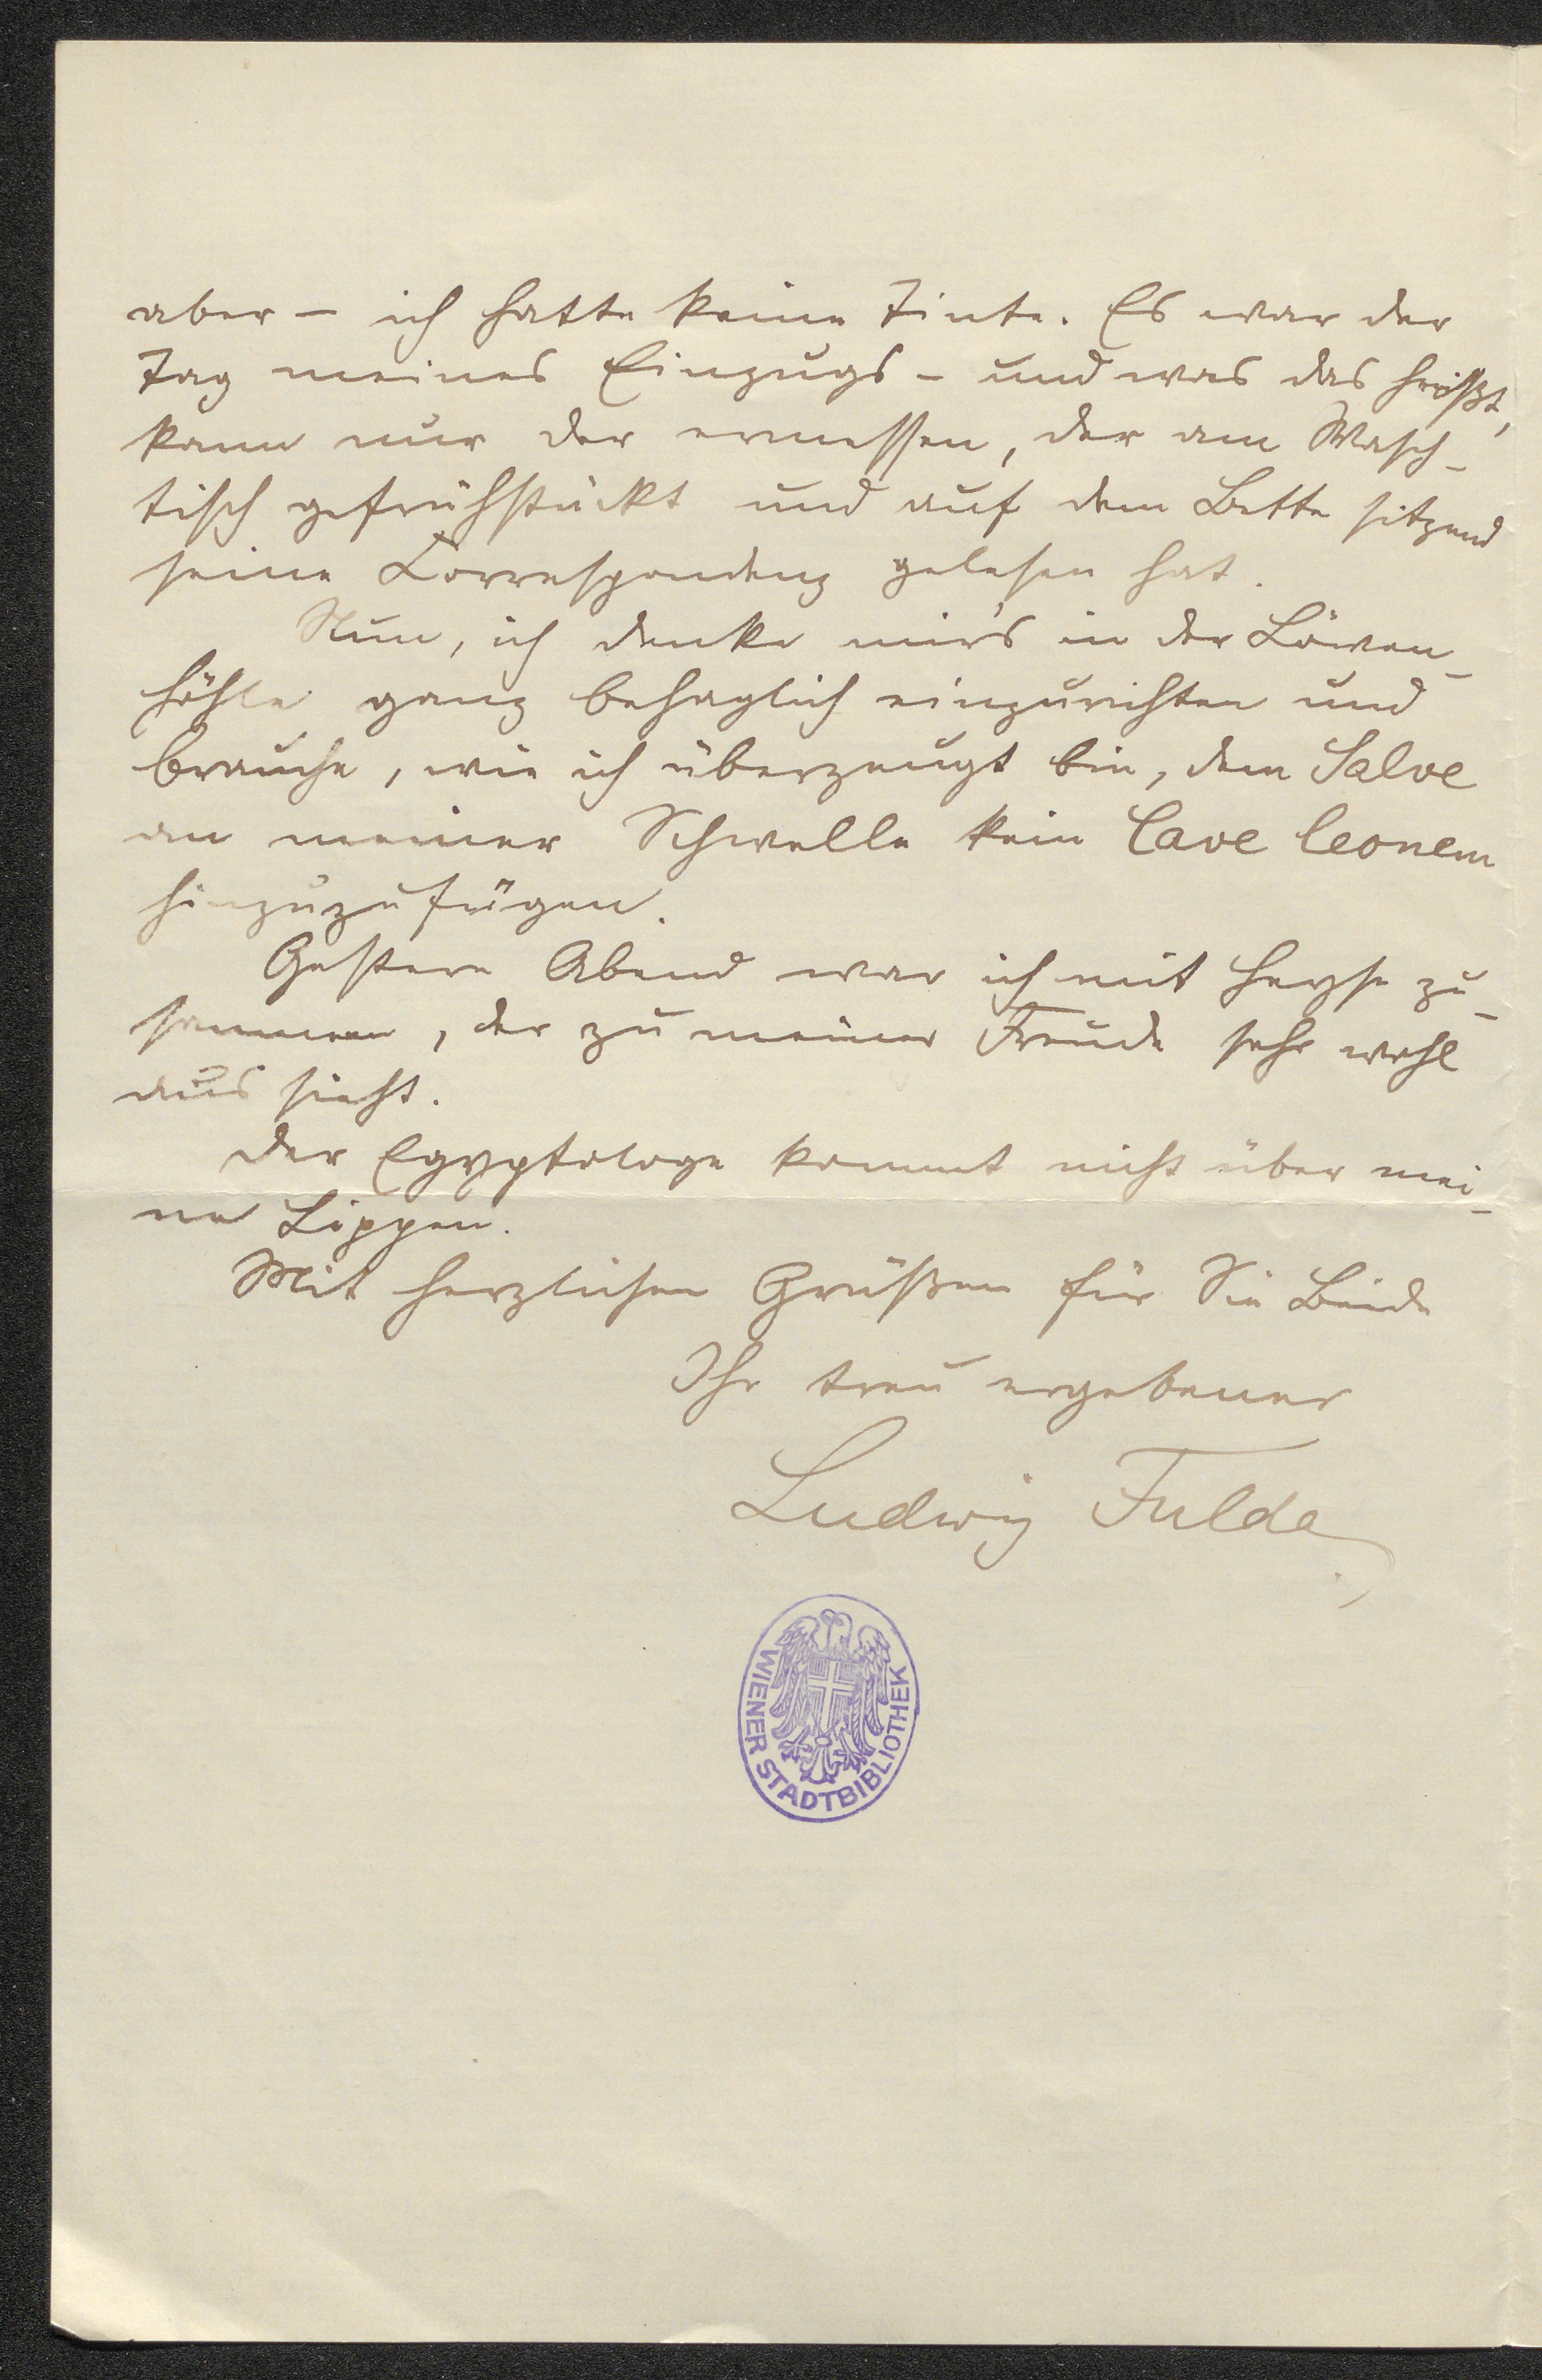 aber – ich hatte keine Tinte. Es war der
Tag meines Einzugs – und was das heißt,
kann nur der ermessen, der am Wasch-
tisch gefrühstückt und auf dem Bette sitzend
seine Correspondenz gelesen hat.
Nun, ich denke mir's in der Löwen-
höhle ganz behaglich einzurichten und
brauche, wie ich überzeugt bin, dem Salve
an meiner Schwelle kein Cave leonem
hinzuzufügen.
Gestern Abend war ich mit Heyse zu-
sammen, der zu meiner Freude sehr wohl
aus sieht.
Der Egyptologe kommt nicht über mei-
ne Lippen.
Mit herzlichen Grüßen für Sie Beide
Ihr treu ergebener
Ludwig Fulda
WIENER STADTBIBLIOTHEK